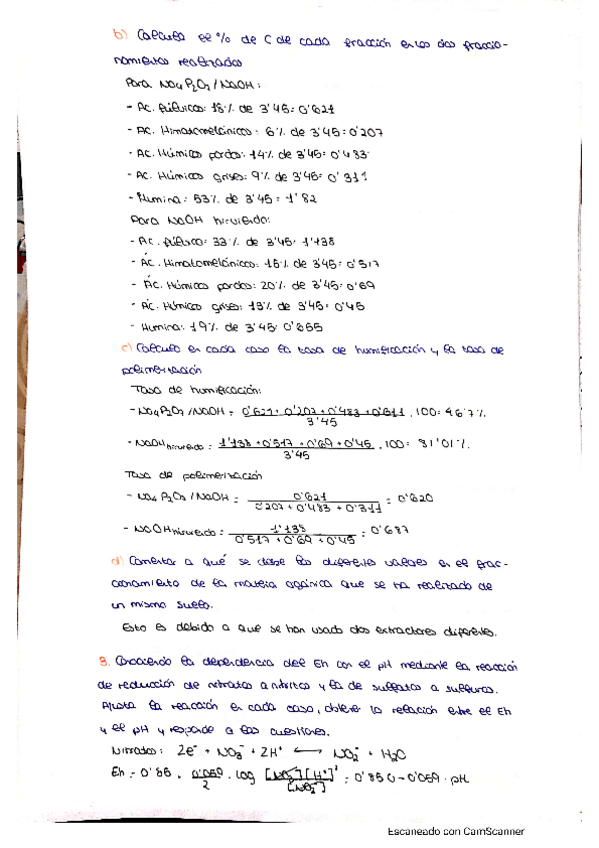 b) Calcula el % de C de cada fracción en los dos fraccio-
namientos realizados
Para Na4P2O7/NaOH:
- Ac. fúlvicos: 18% de 3'45= 0'621
- Ac. Himatomelánicos: 6% de 3'45= 0'207
- Ac. Húmicos pardos: 14% de 3'45= 0'483
- Ac. Húmicos grises: 9% de 3'45= 0'311
- Humina: 53% de 3'45= 1'82
Para NaOH hirviendo:
- Ac. fúlvico: 33% de 3'45= 1'138
- Ác. Himatomelánicos: 15% de 3'45= 0'517
- Ác. Húmicos pardos: 20% de 3'45= 0'69
- Ác. Húmicos grises: 13% de 3'45= 0'45
- Humina: 19% de 3'45= 0'655
c) Calcula en cada caso la tasa de humificación y la tasa de
polimerización
Tasa de humificación:
- Na4P2O7/NaOH = 0'621 + 0'207 + 0'483 + 0'311 / 3'45 . 100= 46'7%
- NaOH hirviendo = 1'138 + 0'517 + 0'69 + 0'45 / 3'45 . 100= 81'01%
Tasa de polimerización
- Na4P2O7/NaOH = 0'621 / 0'207 + 0'483 + 0'311 = 0'620
- NaOH hirviendo = 1'138 / 0'517 + 0'69 + 0'45 = 0'687
d) Comentar a qué se debe los diferentes valores en el frac-
cionamiento de la materia orgánica que se ha realizado de
un mismo suelo.
Esto es debido a que se han usado dos extractores diferentes.
3. Conociendo la dependencia del Eh con el pH mediante la reacción
de reducción de nitratos a nitritos y la de sulfatos a sulfuros.
Ajusta la reacción en cada caso, obtener la relación entre el Eh
y el pH y responde a las cuestiones.
Nitratos: 2e- + NO3- + 2H+ ⟷ NO2- + H2O
Eh = 0'85 + 0'059/2 . log [NO3-][H+]2 / [NO2-] = 0'850 - 0'059 · pH
Escaneado con CamScanner